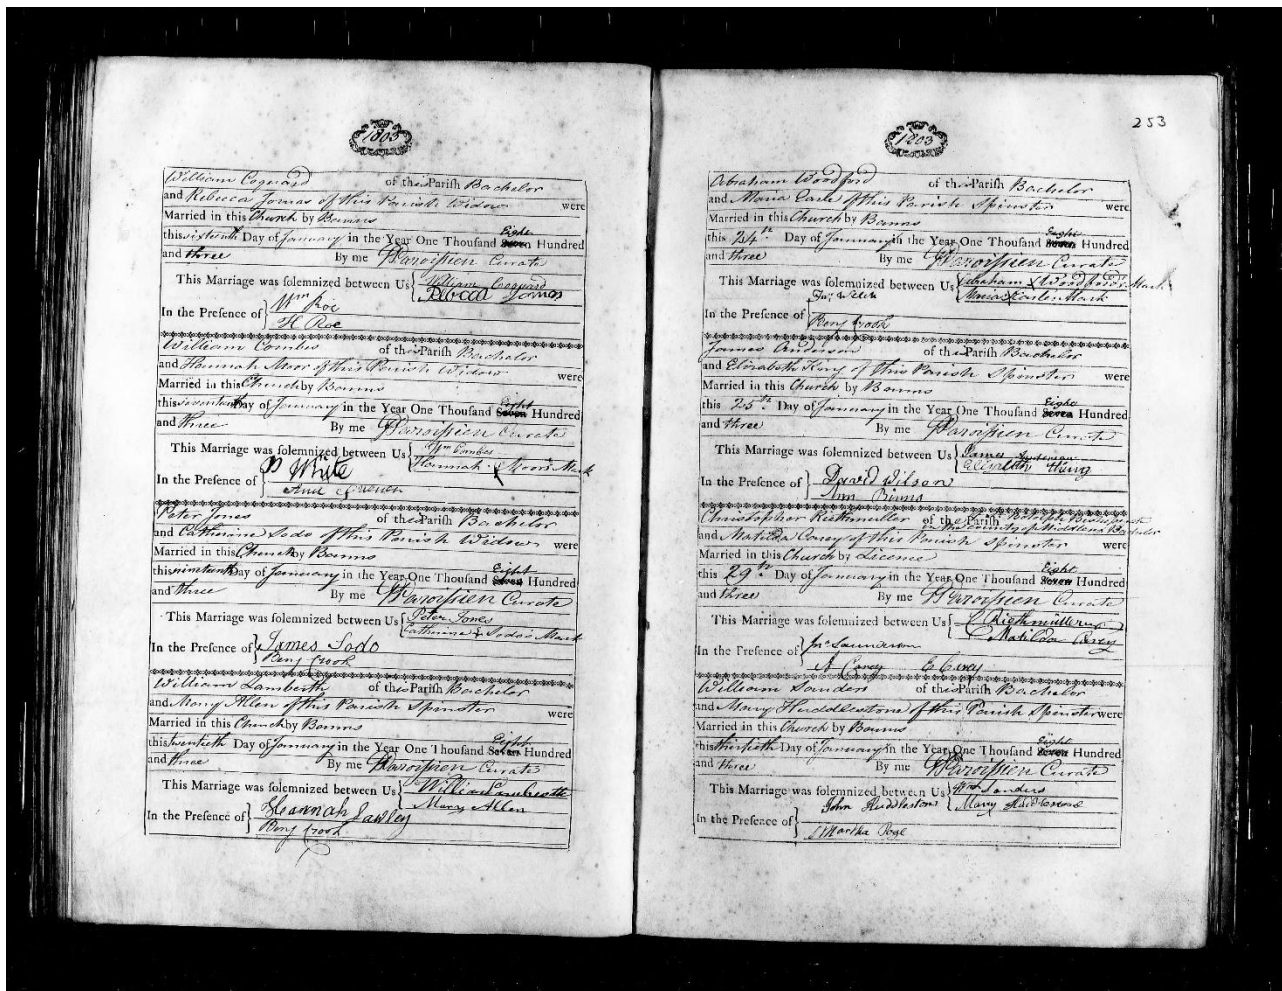 1803
William Coguard of this Parish Bachelor
and Rebecca Jomas of this Parish Widow were
Married in this Church by Banns
this sixteenth Day of January in the Year One Thousand Seven Eight Hundred
and three By me Paroissien Curate
This Marriage was solemnized between Us William Coguard
Rebecca Jomas
In the Presence of Wm Roe
H Roe
William Combes of this Parish Bachelor
and Hannah Moor of this Parish Widow were
Married in this Church by Banns
this seventeenth Day of January in the Year One Thousand Seven Eight Hundred
and three By me Paroissien Curate
This Marriage was solemnized between Us Wm Combes
Hannah X Moor's Mark
In the Presence of P White
Ann
Peter Jones of this Parish Bachelor
and Catherine Sodo of this Parish Widow were
Married in this Church by Banns
this nineteenth Day of January in the Year One Thousand Seven Eight Hundred
and three By me Paroissien Curate
This Marriage was solemnized between Us Peter Jones
Catherine X Sodo's Mark
In the Presence of James Sodo
Benj Crook
William Lamberth of this Parish Bachelor
and Mary Allen of this Parish Spinster were
Married in this Church by Banns
this twentieth Day of January in the Year One Thousand Seven Eight Hundred
and three By me Paroissien Curate
This Marriage was solemnized between Us William Lamberth
Mary Allen
In the Presence of Hannah Lawley
Benj Crook
253
1803
Abraham Woodford of this Parish Bachelor
and Maria Earle of this Parish Spinster were
Married in this Church by Banns
this 24th Day of January in the Year One Thousand Seven Eight Hundred
and three By me Paroissien Curate
This Marriage was solemnized between Us Abraham X Woodford's Mark
Maria X Earles Mark
In the Presence of
Benj Crook
James Anderson of this Parish Bachelor
and Elizabeth King of this Parish Spinster were
Married in this Church by Banns
this 25th Day of January in the Year One Thousand Seven Eight Hundred
and three By me Paroissien Curate
This Marriage was solemnized between Us James Anderson
Elizabeth King
In the Presence of David Wilson
Ann Binns
Christopher Riethmuller of the Parish of
in the County of Middlesex Bachelor
and Matilda Carey of this Parish Spinster were
Married in this Church by Licence
this 29th Day of January in the Year One Thousand Seven Eight Hundred
and three By me Paroissien Curate
This Marriage was solemnized between Us C Riethmuller
Matilda Carey
In the Presence of Jno Saunderson
A Carey C Carey
William Sanders of this Parish Bachelor
and Mary Huddlestone of this Parish Spinster were
Married in this Church by Banns
this thirtieth Day of January in the Year One Thousand Seven Eight Hundred
and three By me Paroissien Curate
This Marriage was solemnized between Us Wm Sanders
Mary Huddlestone
In the Presence of John Huddlestone
Martha Page